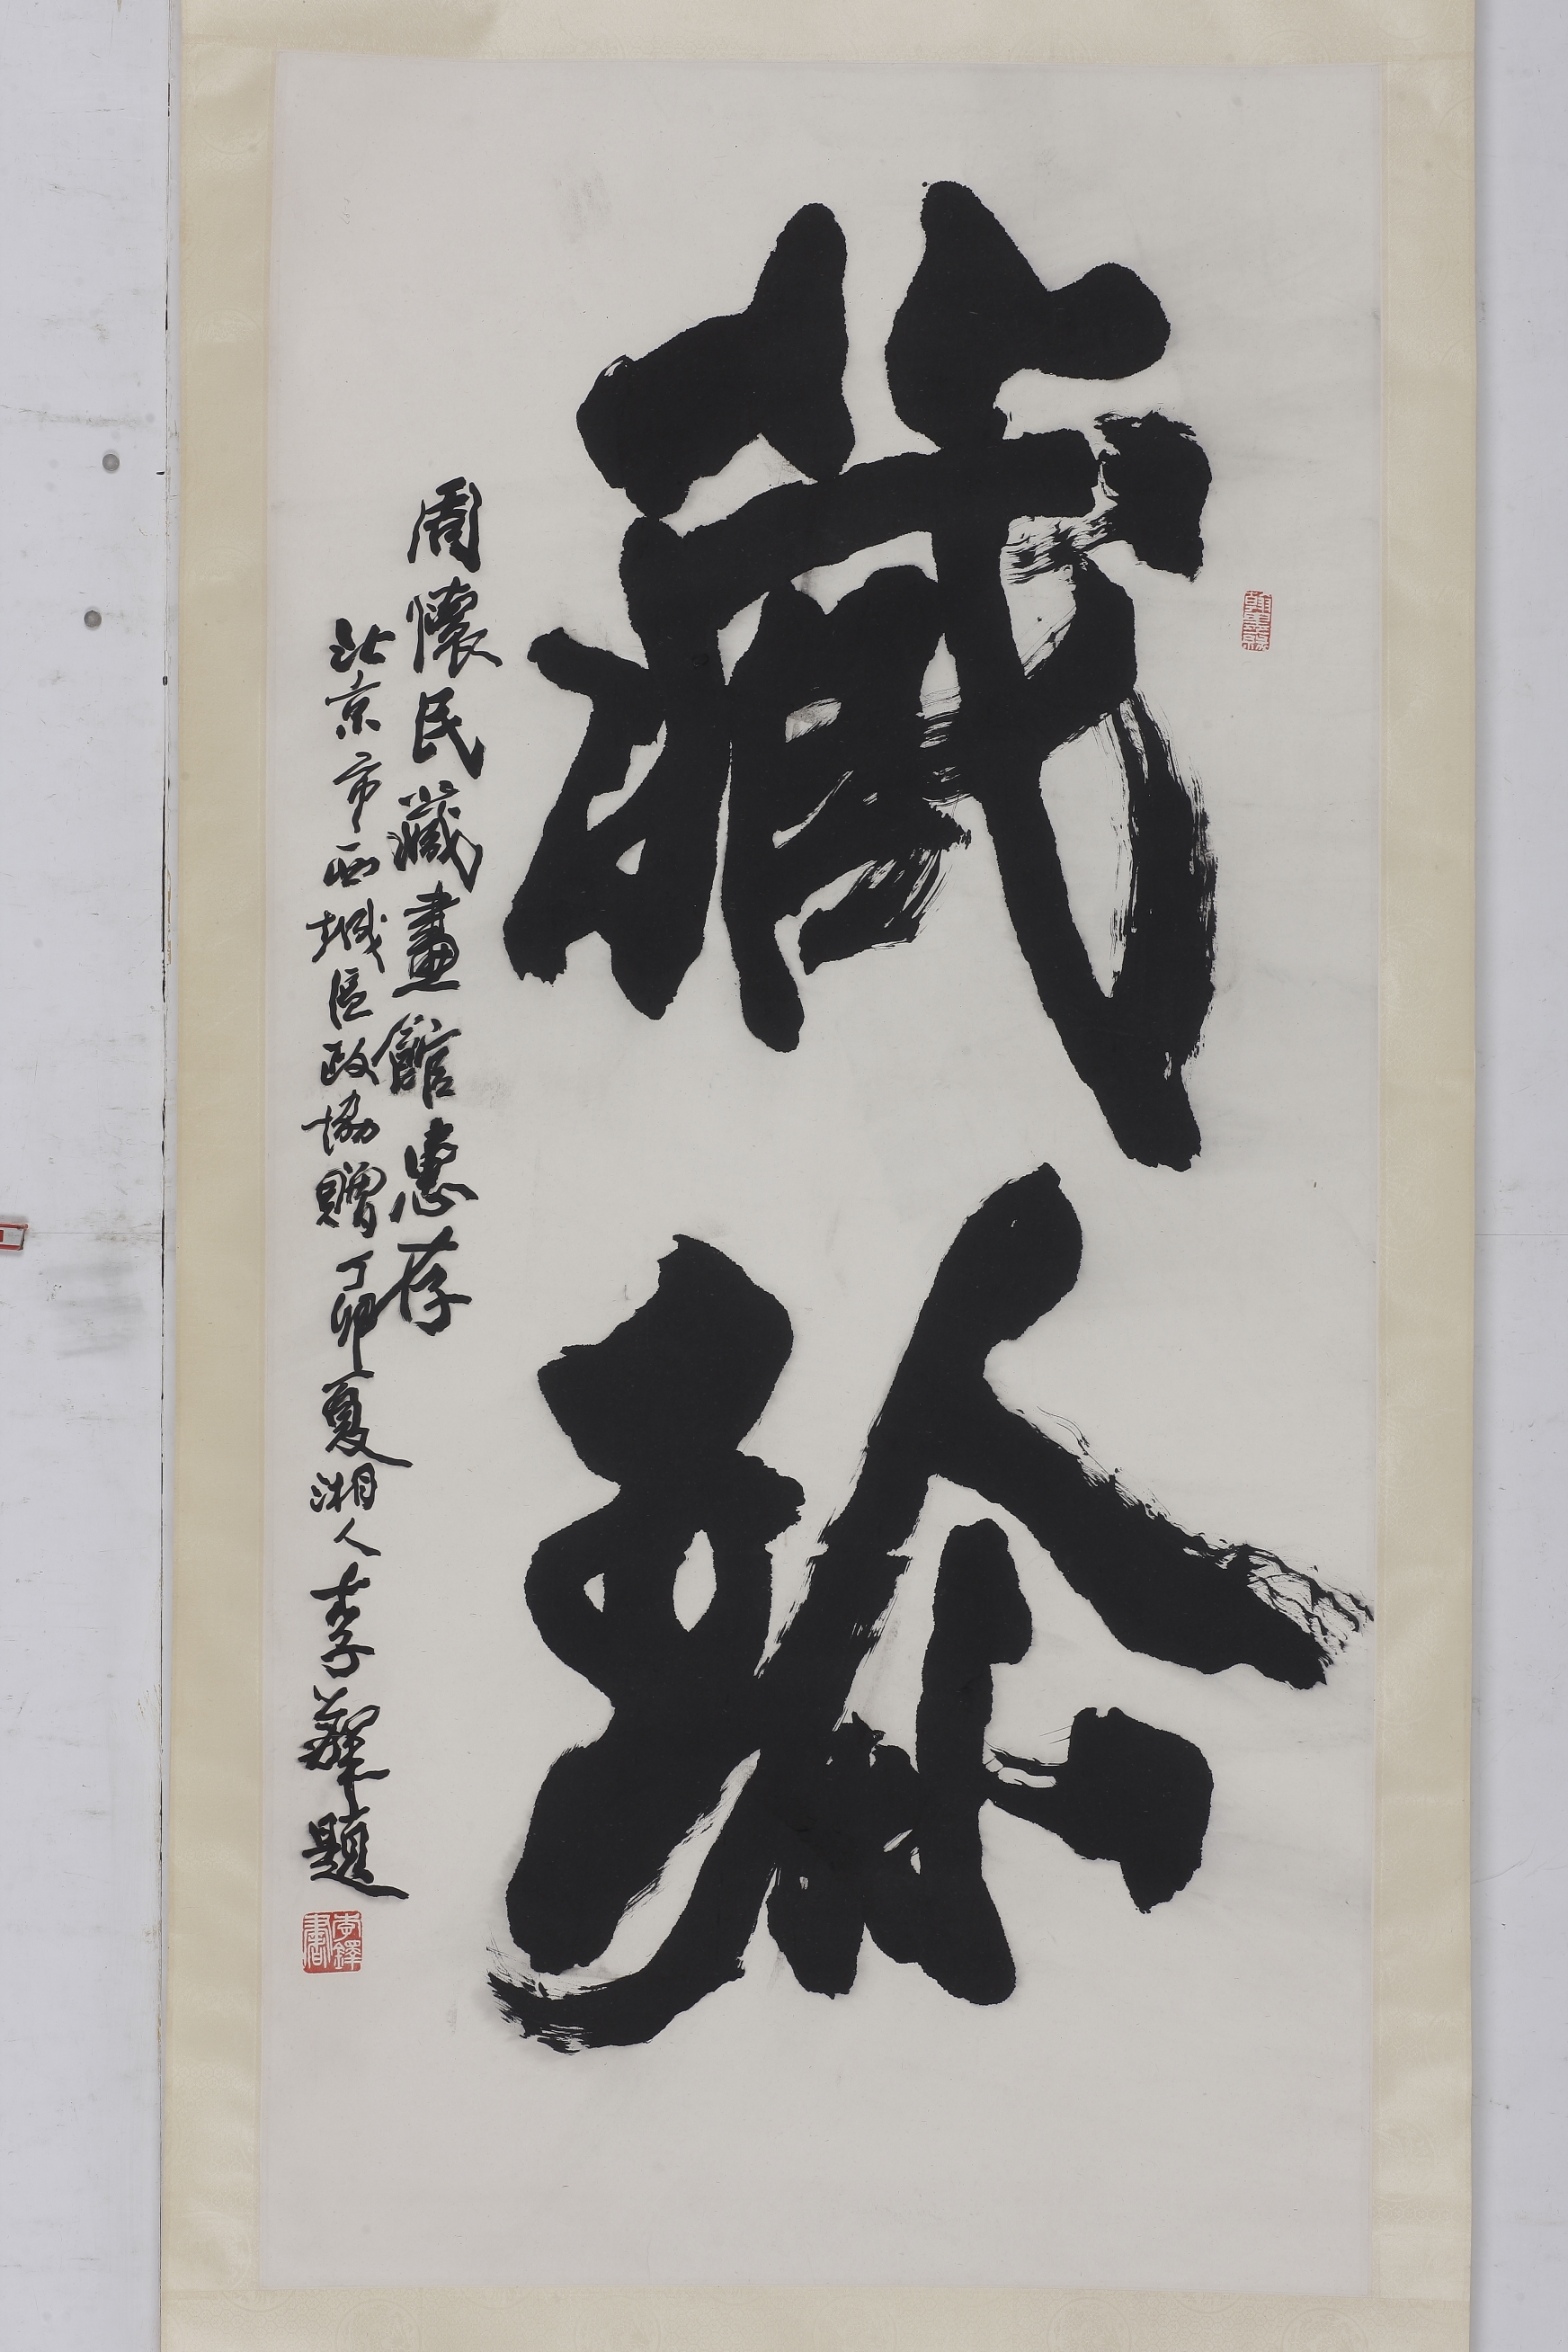 藏珎
周懷民藏畫館惠存
北京市西城區政協贈丁卯夏湘人李鐸題
李鐸
書